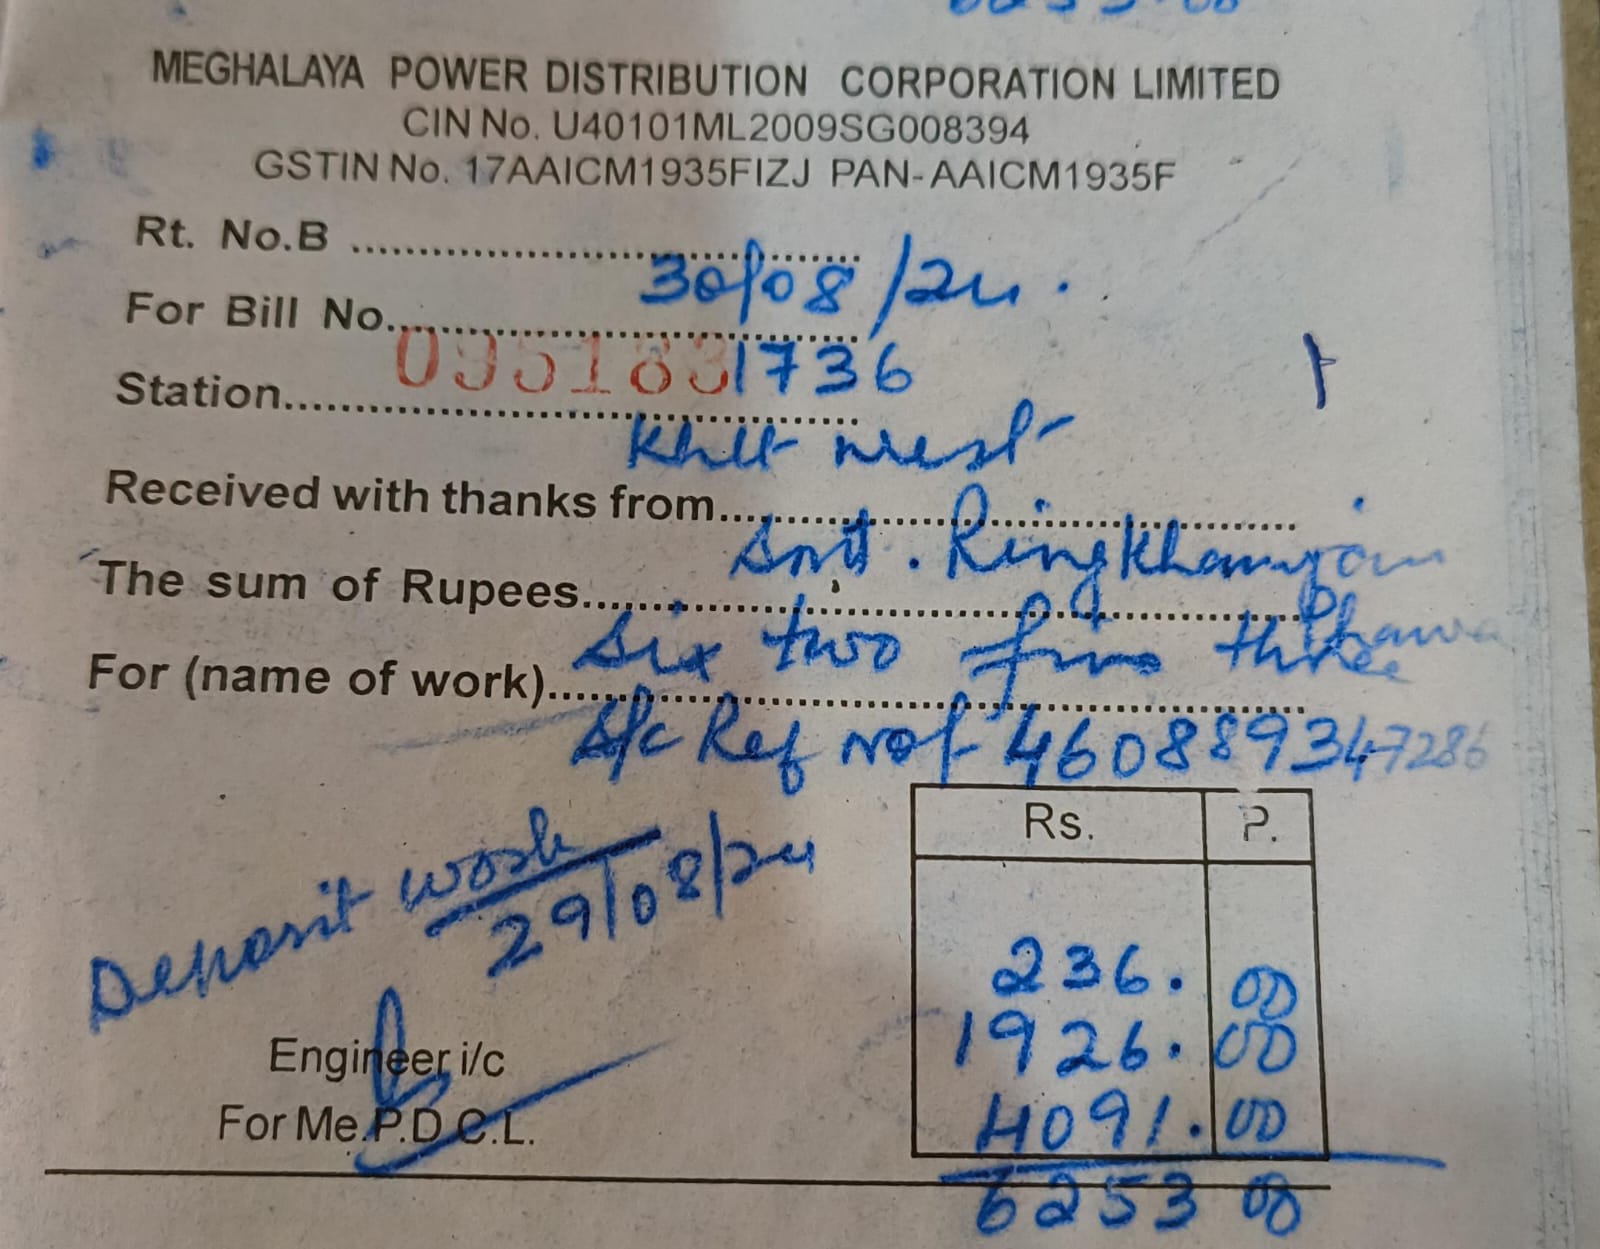 6253.00
MEGHALAYA POWER DISTRIBUTION CORPORATION LIMITED
CIN No. U40101ML2009SG008394
GSTIN No. 17AAICM1935FIZJ PAN-AAICM1935F
Rt. No.B ..........
30/08/24.
For Bill No..........
095183 1736
Station..........
Khlt west
Received with thanks from..........
Smt. Ring
The sum of Rupees..........
Six two five three
For (name of work)..........
S/c Ref No 460889347286
Rs. P.
Deposit work
29/08/24
236. 00
1926. 00
4091. 00
6253 00
Engineer i/c
For Me.P.D.C.L.